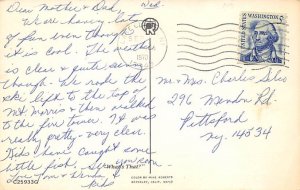 Dear Mother & Dad, Wed.
We are having lots
of fun even though
it is cool. The weather
is clear & quite sunny
though. We rode the
ski lift to the top of
Mt. Morris & then walked
to the fire tower. It was
really pretty - very clear.
Kids have caught some
little fish. See you soon
Love Tom & & kids
"What's That"
C25933G
COLOR BY MIKE ROBERTS
BERKELEY, CALIF. 94710
UNITED STATES
WASHINGTON 5c
Mr & Mrs. Charles Stiles
296 Mendon Rd.
Pittsford
Ny. 14534